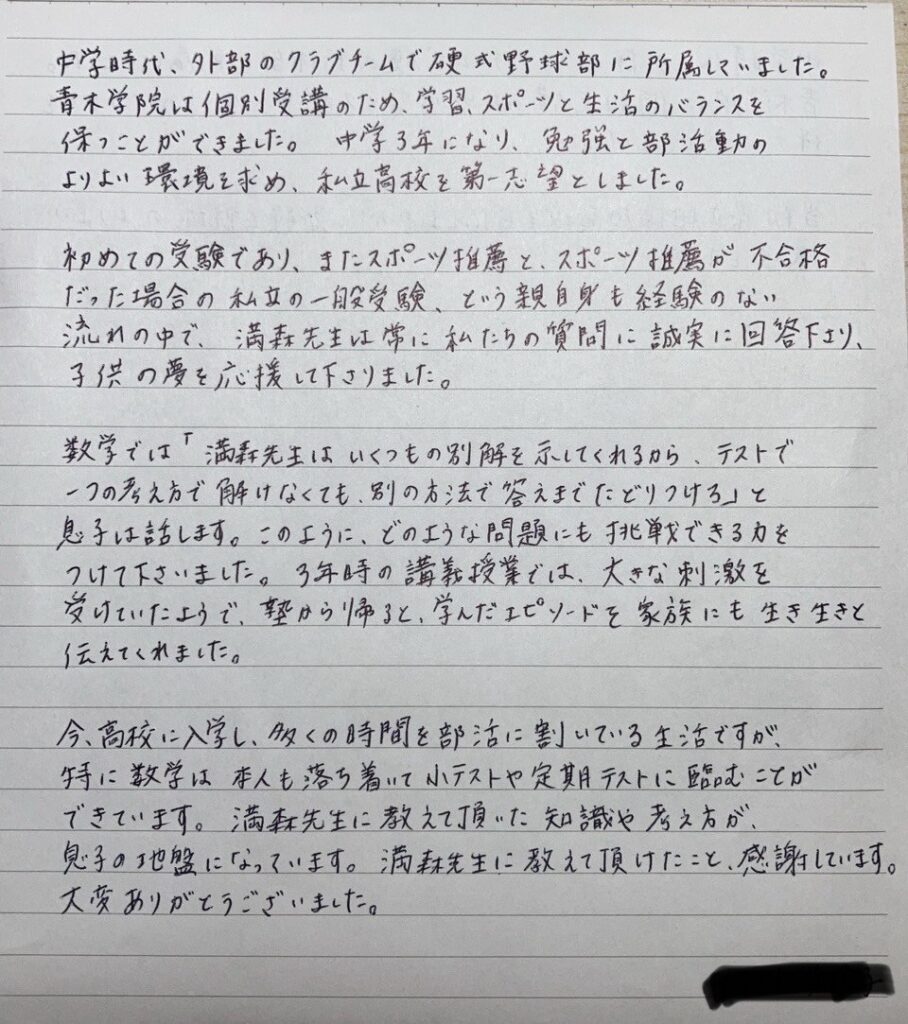 中学時代、外部のクラブチームで硬式野球部に所属していました。
青木学院は個別受講のため、学習、スポーツと生活のバランスを
保つことができました。 中学3年になり、勉強と部活動の
よりよい環境を求め、私立高校を第一志望としました。
初めての受験であり、またスポーツ推薦と、スポーツ推薦が不合格
だった場合の私立の一般受験、という親自身も経験のない
流れの中で、満森先生は常に私たちの質問に誠実に回答下さり、
子供の夢を応援して下さりました。
数学では「満森先生はいくつもの別解を示してくれるから、テストで
一つの考え方で解けなくても、別の方法で答えまでたどりつける」と
息子は話します。このように、どのような問題にも挑戦できる力を
つけて下さいました。3年時の講義授業では、大きな刺激を
受けていたようで、塾から帰ると、学んだエピソードを家族にも生き生きと
伝えてくれました。
今、高校に入学し、多くの時間を部活に割いている生活ですが、
特に数学は本人も落ち着いて小テストや定期テストに臨むことが
できています。満森先生に教えて頂いた知識や考え方が、
息子の地盤になっています。満森先生に教えて頂けたこと、感謝しています。
大変ありがとうございました。